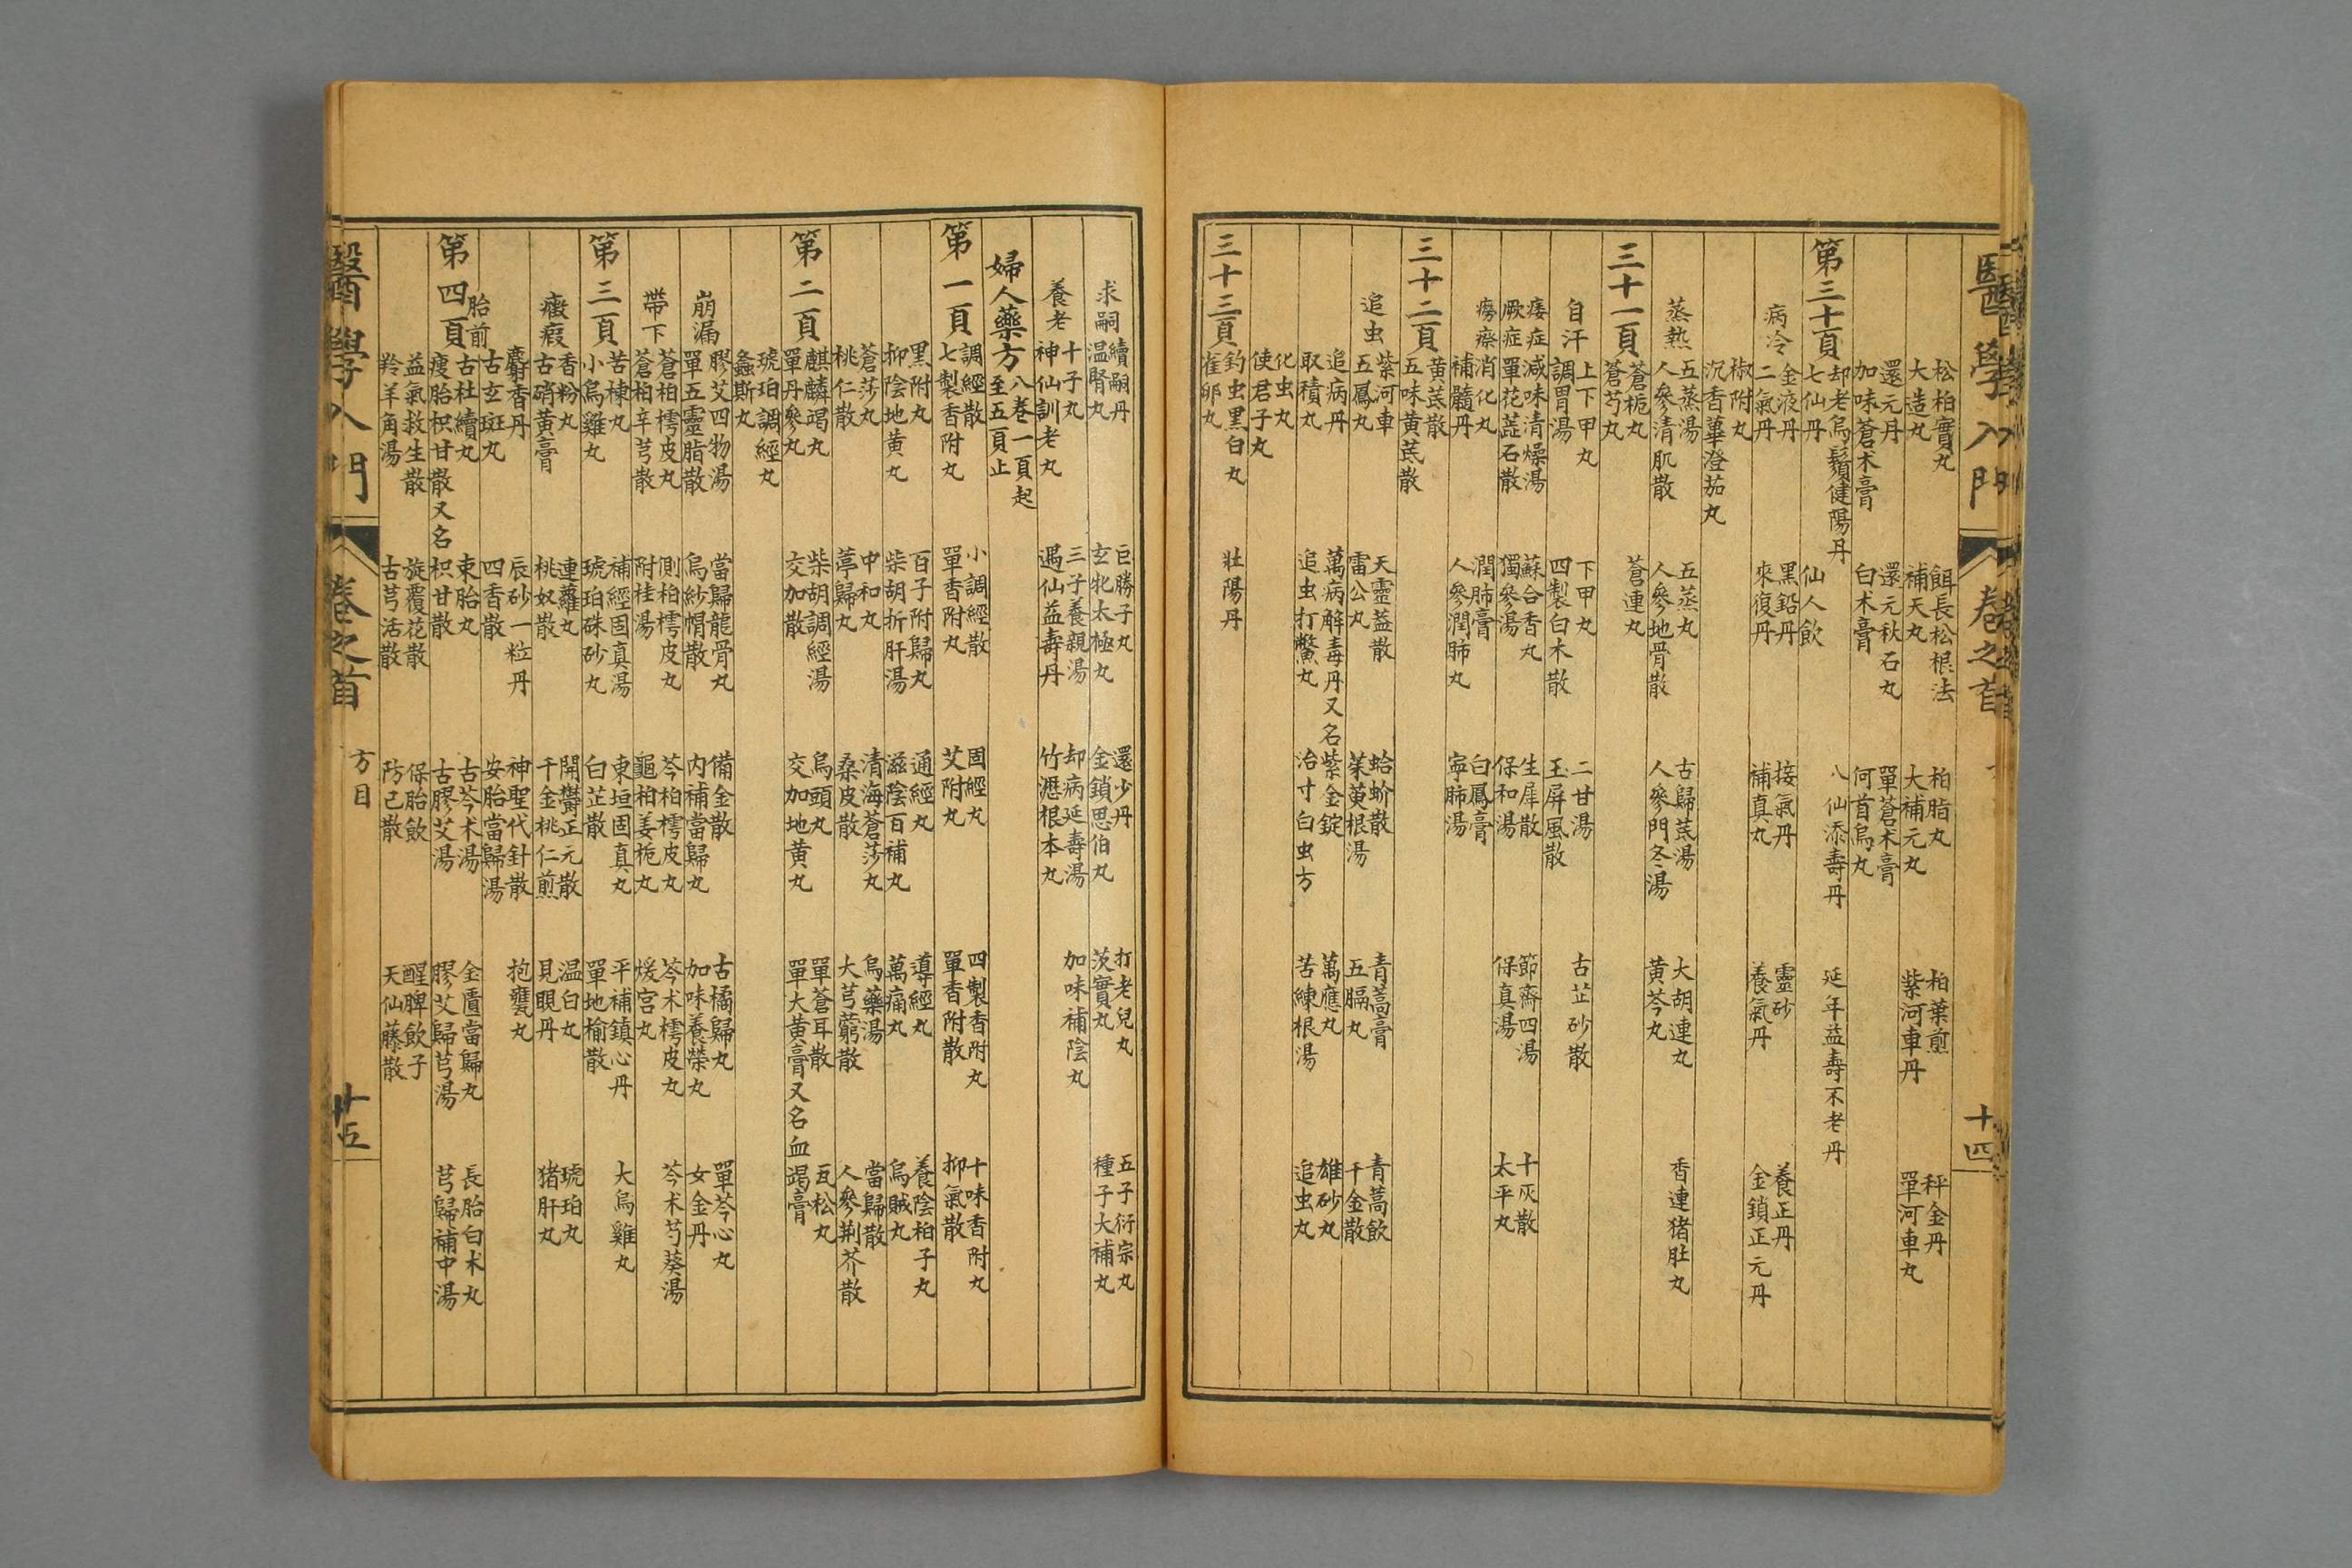 醫學入門 卷之首 十四
松柏實丸 餌長松根法 柏脂丸 柏葉煎 秤金丹
大造丸 補天丸 大補元丸 紫河車丹 單河車丸
還元丹 還元秋石丸 單蒼朮膏
加味蒼朮膏 白朮膏 何首烏丸
第三十頁 却老烏鬚健陽丹 八仙添壽丹 延年益壽不老丹
七仙丹 仙人飲
病冷 金液丹 黑鉛丹 接氣丹 靈砂 養正丹
二氣丹 來復丹 補真丸 養氣丹 金鎖正元丹
椒附丸
沉香蓽澄茄丸
蒸熱 五蒸湯 五蒸丸 古歸芪湯 大胡連丸 香連猪肚丸
人參清肌散 人參地骨散 人參門冬湯 黃芩丸
三十一頁 蒼梔丸 蒼連丸
蒼芎丸
自汗 上下甲丸 下甲丸 二甘湯 古芷砂散
調胃湯 四製白朮散 玉屏風散
痿症 減味清燥湯 蘇合香丸 生犀散 節齋四湯 十灰散
厥症 單花蕋石散 獨參湯 保和湯 保真湯 太平丸
癆瘵 消化丸 潤肺膏 白鳳膏
補髓丹 人參潤肺丸 寧肺湯
三十二頁 黃芪散
五味黃芪散
追虫 紫河車 天靈蓋散 蛤蚧散 青蒿膏 青蒿飲
五鳳丸 雷公丸 茱萸根湯 五膈丸 千金散
追病丹 萬病解毒丹又名紫金錠 萬應丸 雄砂丸
取積丸 追虫打鱉丸 治寸白虫方 苦練根湯 追虫丸
化虫丸
使君子丸
三十三頁 釣虫黑白丸 壯陽丹
雀卵丸
求嗣 續嗣丹 巨勝子丸 還少丹 打老兒丸 五子衍宗丸
温腎丸 玄牝太極丸 金鎖思伯丸 茨實丸 種子大補丸
養老 十子丸 三子養親湯 却病延壽湯 加味補陰丸
神仙訓老丸 遇仙益壽丹 竹瀝根本丸
婦人藥方 八卷一頁起
至五頁止
第一頁 調經散 小調經散 固經丸 四製香附丸 十味香附丸
七製香附丸 單香附丸 艾附丸 單香附散 抑氣散
黑附丸 百子附歸丸 通經丸 導經丸 養陰柏子丸
抑陰地黃丸 柴胡折肝湯 滋陰百補丸 萬痛丸 烏賊丸
蒼莎丸 中和丸 清海蒼莎丸 烏藥湯 當歸散
桃仁散 葶歸丸 桑皮散 大芎藭散 人參荆芥散
第二頁 麒麟竭丸 柴胡調經湯 烏頭丸 單蒼耳散 瓦松丸
單丹參丸 交加散 交加地黃丸 單大黃膏又名血竭膏
琥珀調經丸
螽斯丸
崩漏 膠艾四物湯 當歸龍骨丸 備金散 古橘歸丸 單芩心丸
單五靈脂散 烏紗帽散 內補當歸丸 加味養榮丸 女金丹
帶下 蒼柏樗皮丸 側柏樗皮丸 芩柏樗皮丸 芩朮樗皮丸 芩朮芍葵湯
蒼柏辛芎散 附桂湯 龜柏姜梔丸 煖宮丸
第三頁 苦楝丸 補經固真湯 東垣固真丸 平補鎮心丹 大烏雞丸
小烏雞丸 琥珀硃砂丸 白芷散 單地榆散
癥瘕 香粉丸 連蘿丸 開鬱正元散 温白丸 琥珀丸
古硝黃膏 桃奴散 千金桃仁煎 見睍丹 猪肝丸
麝香丹 辰砂一粒丹 神聖代針散 抱甕丸
胎前 古玄斑丸 四香散 安胎當歸湯
第四頁 古杜續丸 束胎丸 古芩朮湯 金匱當歸丸 長胎白朮丸
瘦胎枳甘散又名枳甘散 古膠艾湯 膠艾歸芎湯 芎歸補中湯
益氣救生散 旋覆花散 保胎飲 醒脾飲子
羚羊角湯 古芎活散 防己散 天仙藤散
醫學入門 卷之首 方目 十五